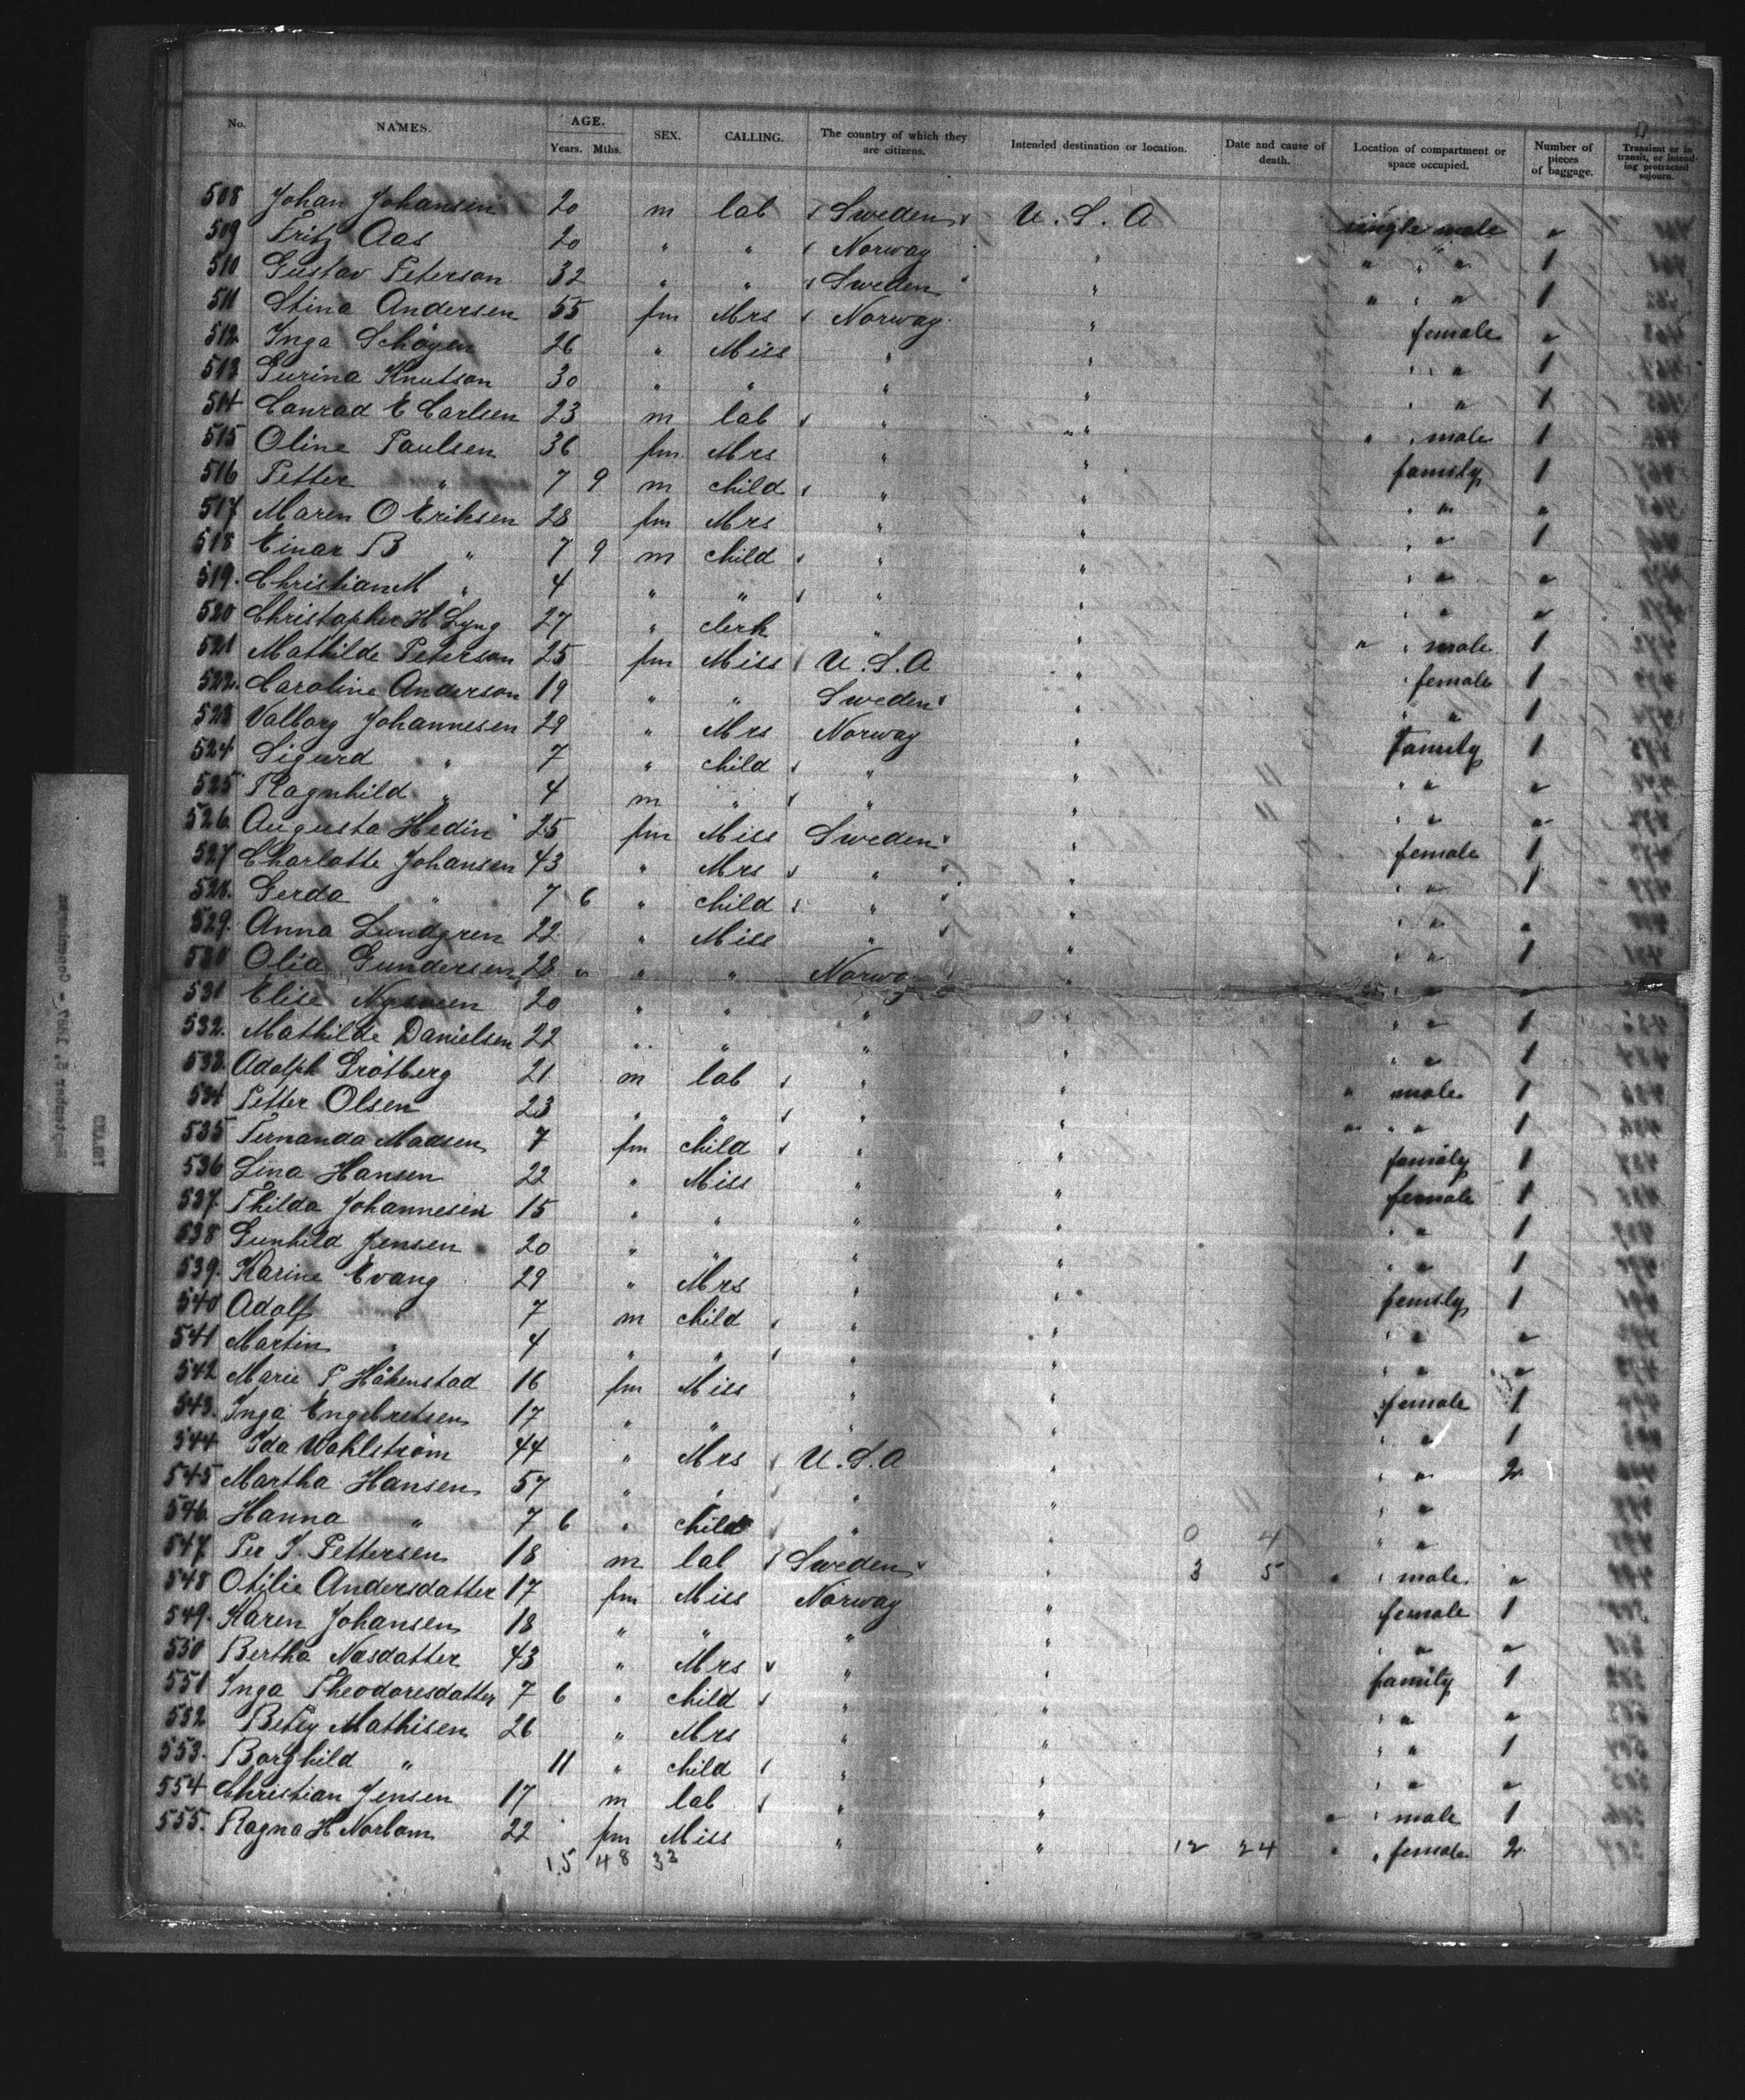 No. NAMES. AGE. SEX. CALLING. The country of which they are citizens. Intended destination or location. Date and cause of death. Location of compartment or space occupied. Number of pieces of baggage. Transient or in transit, or intending protracted sojourn.
Years. Mths.
508 Johan Johansen 20 m lab Sweden U. S. A single male "
509 Fritz Aas 20 " " Norway " " " " 1
510 Gustav Peterson 32 " " Sweden " " " " 1
511 Stina Andersen 55 fm Mrs Norway " female "
512 Inga Schøyen 26 " Miss " " " " 1
513 Gurina Knutson 30 " " " " " " 1
514 Conrad E Carlsen 23 m lab " " " " male 1
515 Oline Paulsen 36 fm Mrs " " family 1
516 Petter " 7 9 m child " " " " "
517 Maren O Eriksen 28 fm Mrs " " " " 1
518 Einar B " 7 9 m child " " " " "
519. Christian M " 4 " " " " " " "
520 Christopher H Lyng 27 " clerk " " " " male 1
521 Mathilde Peterson 25 fm Miss U. S. A " " female 1
522. Caroline Anderson 19 " " Sweden " " " 1
523 Valborg Johannesen 29 " Mrs Norway " Family 1
524 Sigurd " 7 " child " " " " "
525 Ragnhild " 4 m " " " " " "
526 Augusta Hedin 25 fm Miss Sweden " female 1
527 Charlotte Johansen 43 " Mrs " " " " 1
528. Gerda " 7 6 " child " " " " "
529. Anna Lundgren 22 " Miss " " " " 1
530 Olia Gundersen 28 " " " Norway " " " "
531 Elise 20 " " " " " " 1
532. Mathilde Danielsen 22 " " " " " " 1
533. Adolph Grötberg 21 m lab " " " male 1
534 Petter Olsen 23 " " " " " " " 1
535 Fernanda Madsen 7 fm child " " family 1
536 Lina Hansen 22 " Miss " " female 1
537. Thilda Johannesen 15 " " " " " " 1
538 Gunhild Jensen 20 " " " " " " 1
539. Karine Evang 29 " Mrs " " family 1
540 Adolf " 7 m child " " " " "
541 Martin " 4 " " " " " " "
542 Marie P Håkenstad 16 fm Miss " " female 1
543. Inga Engebretsen 17 " " " " " " 1
544 Ida Wahlström 44 " Mrs U. S. A " " " 2
545 Martha Hansen 57 " " " " " "
546 Hanna " 7 6 " child " " 0 4 " "
547 Per J. Pettersen 18 m lab Sweden " 3 5 " " male "
548 Otilie Andersdatter 17 fm Miss Norway " female 1
549. Karen Johansen 18 " " " " " " "
550 Bertha Nasdatter 43 " Mrs " " family 1
551 Inga Theodoresdatter 7 6 " child " " " " "
552 Betsy Mathisen 26 " Mrs " " " " 1
553. Borghild " 11 " child " " " " "
554 Christian Jensen 17 m lab " " " " male 1
555. Ragna H Norbom 22 fm Miss " " 12 24 " " female 2
15 48 33